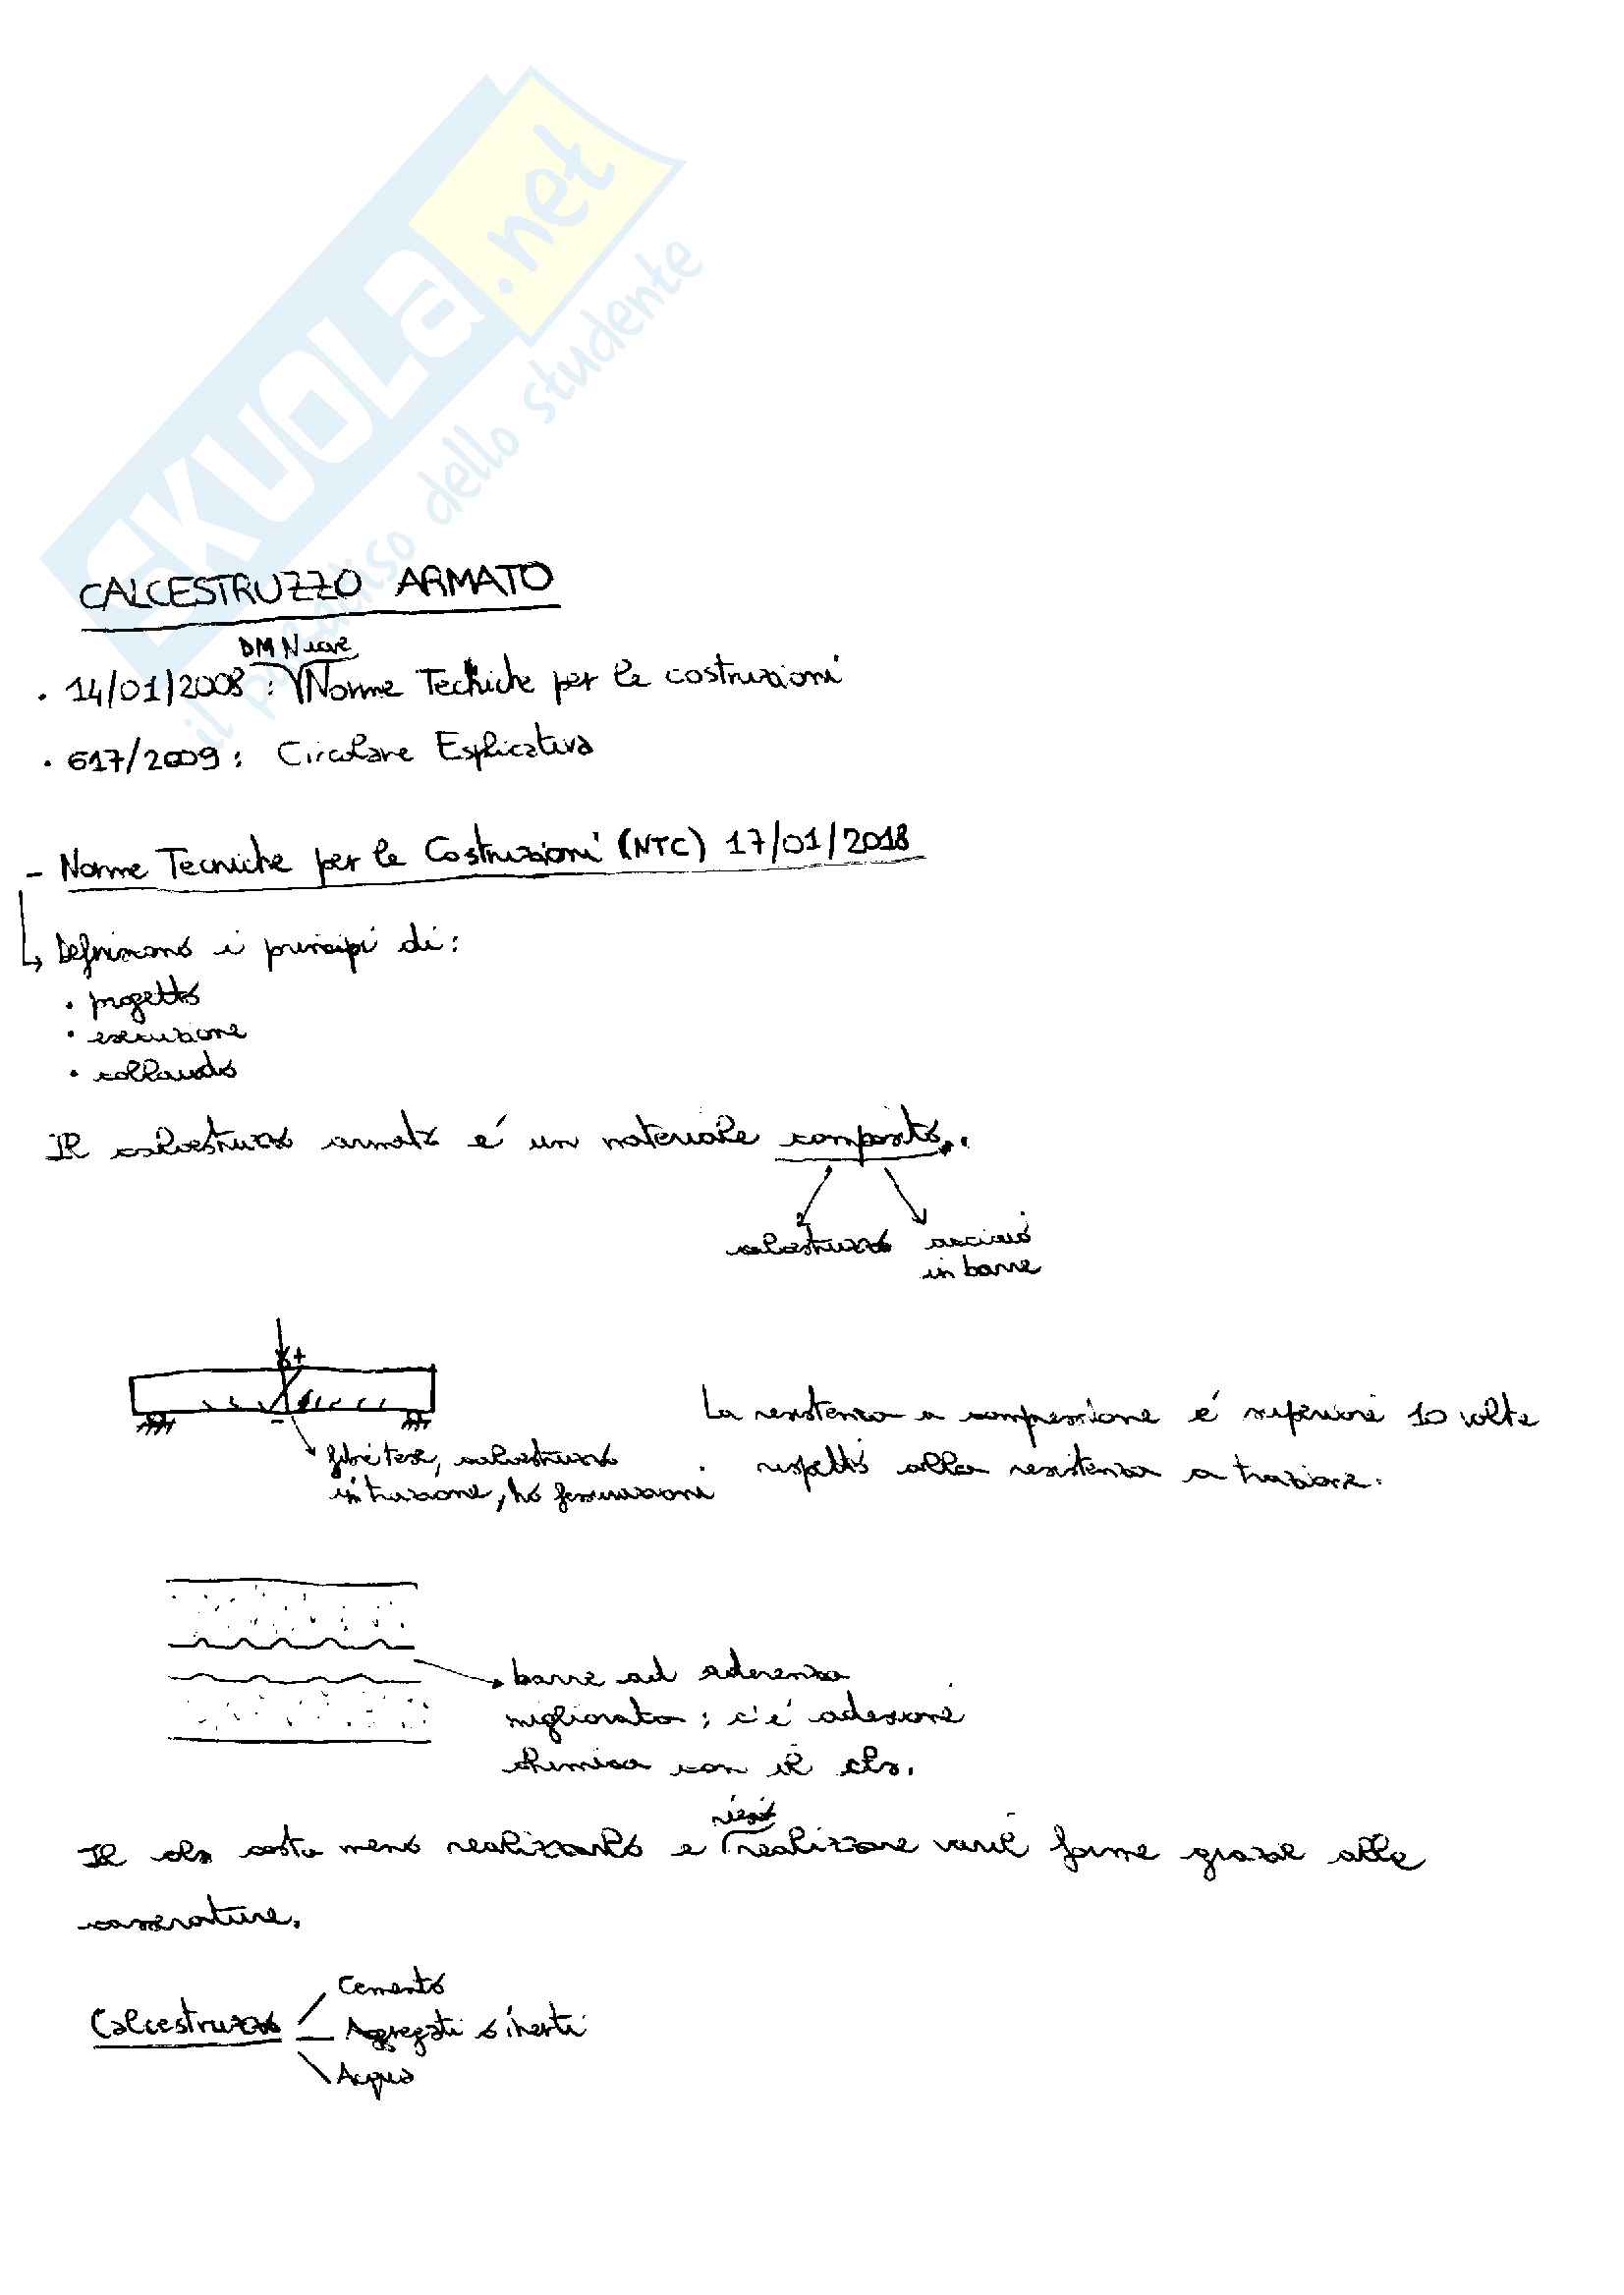 SKUOLA.net
il paradiso dello studente
CALCESTRUZZO ARMATO
DM Nuove
• 14/01/2008 : Norme Tecniche per le costruzioni
• 617/2009 : Circolare Esplicativa
- Norme Tecniche per le Costruzioni (NTC) 17/01/2018
Definiscono i principi di:
• progetto
• esecuzione
• collaudo
Il calcestruzzo armato é un materiale composto.
calcestruzzo acciaio
in barre
+
-
fibre tese, calcestruzzo
in trazione, ho fessurazioni
La resistenza a compressione é superiore 10 volte
rispetto alla resistenza a trazione.
barre ad aderenza
migliorata; c'é adesione
chimica con il cls.
riesco
Il cls costa meno realizzarlo e realizzare varie forme grazie alle
casserature.
Cemento
Calcestruzzo Aggregati o inerti
Acqua